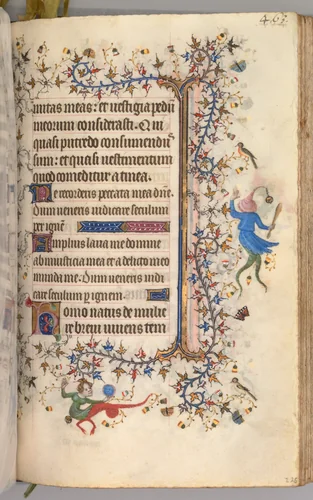 461
mitas meas: et uestigia pedū
meorum considerasti. Qui
quasi putredo consumendus
sum: et quasi uestimentum
quod comeditur a tinea.
Ne recorderis peccata mea dñe.
Dum ueneris iudicare seculum
per ignē.
Amplius laua me domine
ab iniusticia mea et a delicto meo
munda me. Dum ueneris iudi
care seculum p ignem.
Homo natus de mulie
re breui uiuens tem